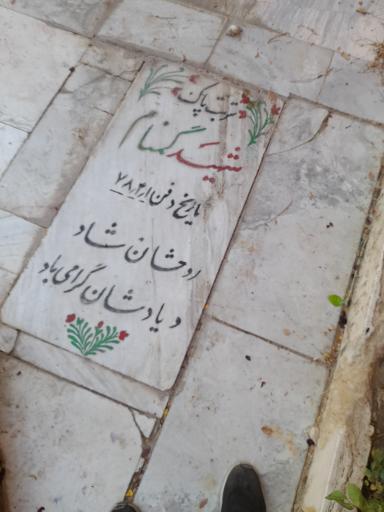 تربت پاک
شهید گمنام
تاریخ دفن ۷۸،۳،۱
روحشان شاد
و یادشان گرامی باد